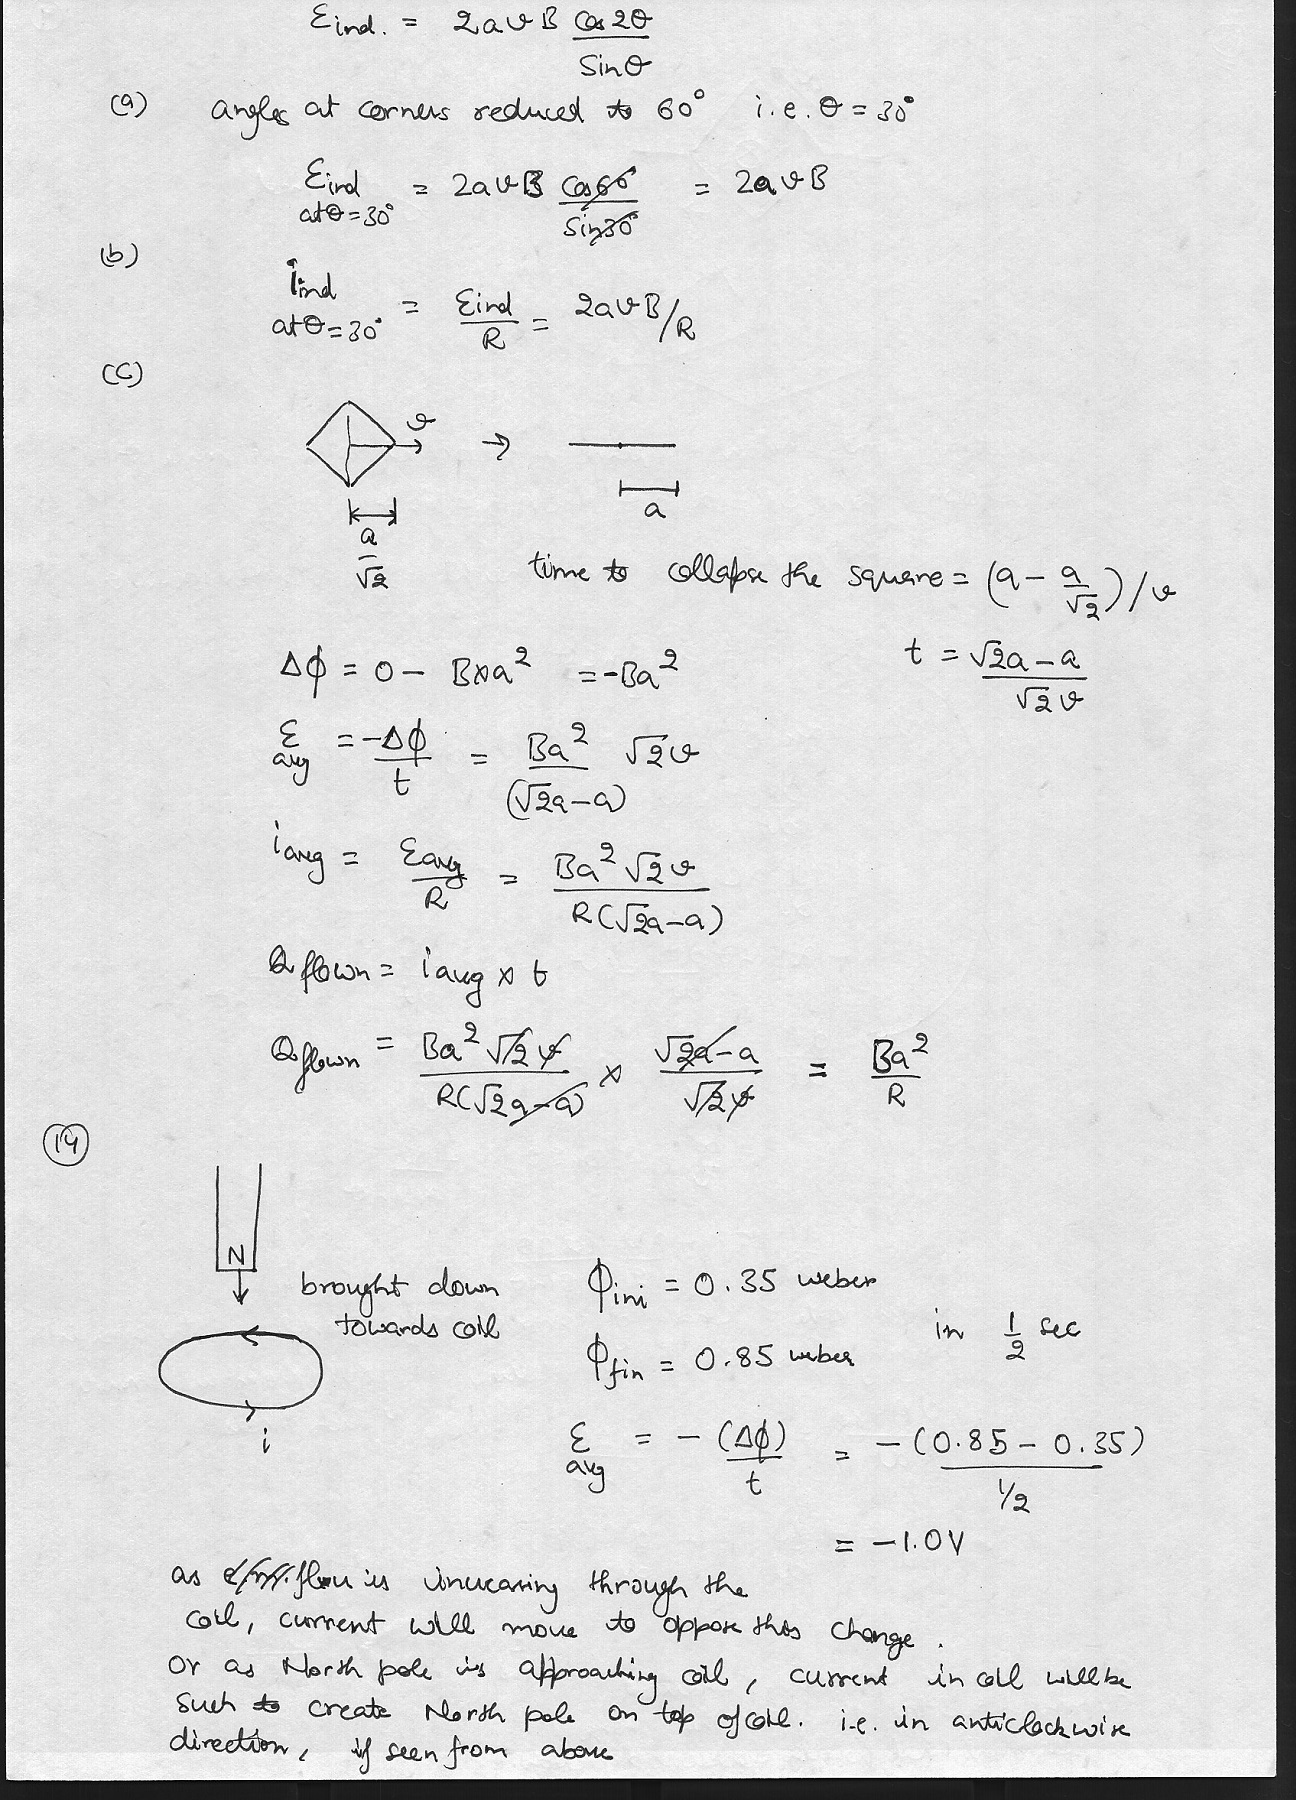 Eind. = 2avB Cos2θ / Sinθ
(a) angles at corners reduced to 60° i.e. θ = 30°
Eind at θ=30° = 2avB Cos60° / Sin30° = 2avB
(b)
Iind at θ=30° = Eind / R = 2avB/R
(c)
v
a/√2
a
time to collapse the square = (a - a/√2)/v
Δϕ = 0 - B×a² = -Ba²
t = √2a - a / √2v
Eavg = -Δϕ / t = Ba² √2v / (√2a-a)
iavg = Eavg / R = Ba²√2v / R(√2a-a)
Qflown = iavg × t
Qflown = Ba²√2v / R(√2a-a) × √2a-a / √2v = Ba² / R
14
N
brought down
towards coil
i
ϕini = 0.35 weber
ϕfin = 0.85 weber
in 1/2 sec
Eavg = -(Δϕ) / t = -(0.85 - 0.35) / 1/2
= -1.0V
as flux is increasing through the
coil, current will move to oppose this change.
Or as North pole is approaching coil, current in coil will be
such to create North pole on top of coil. i.e. in anticlockwise
direction, if seen from above